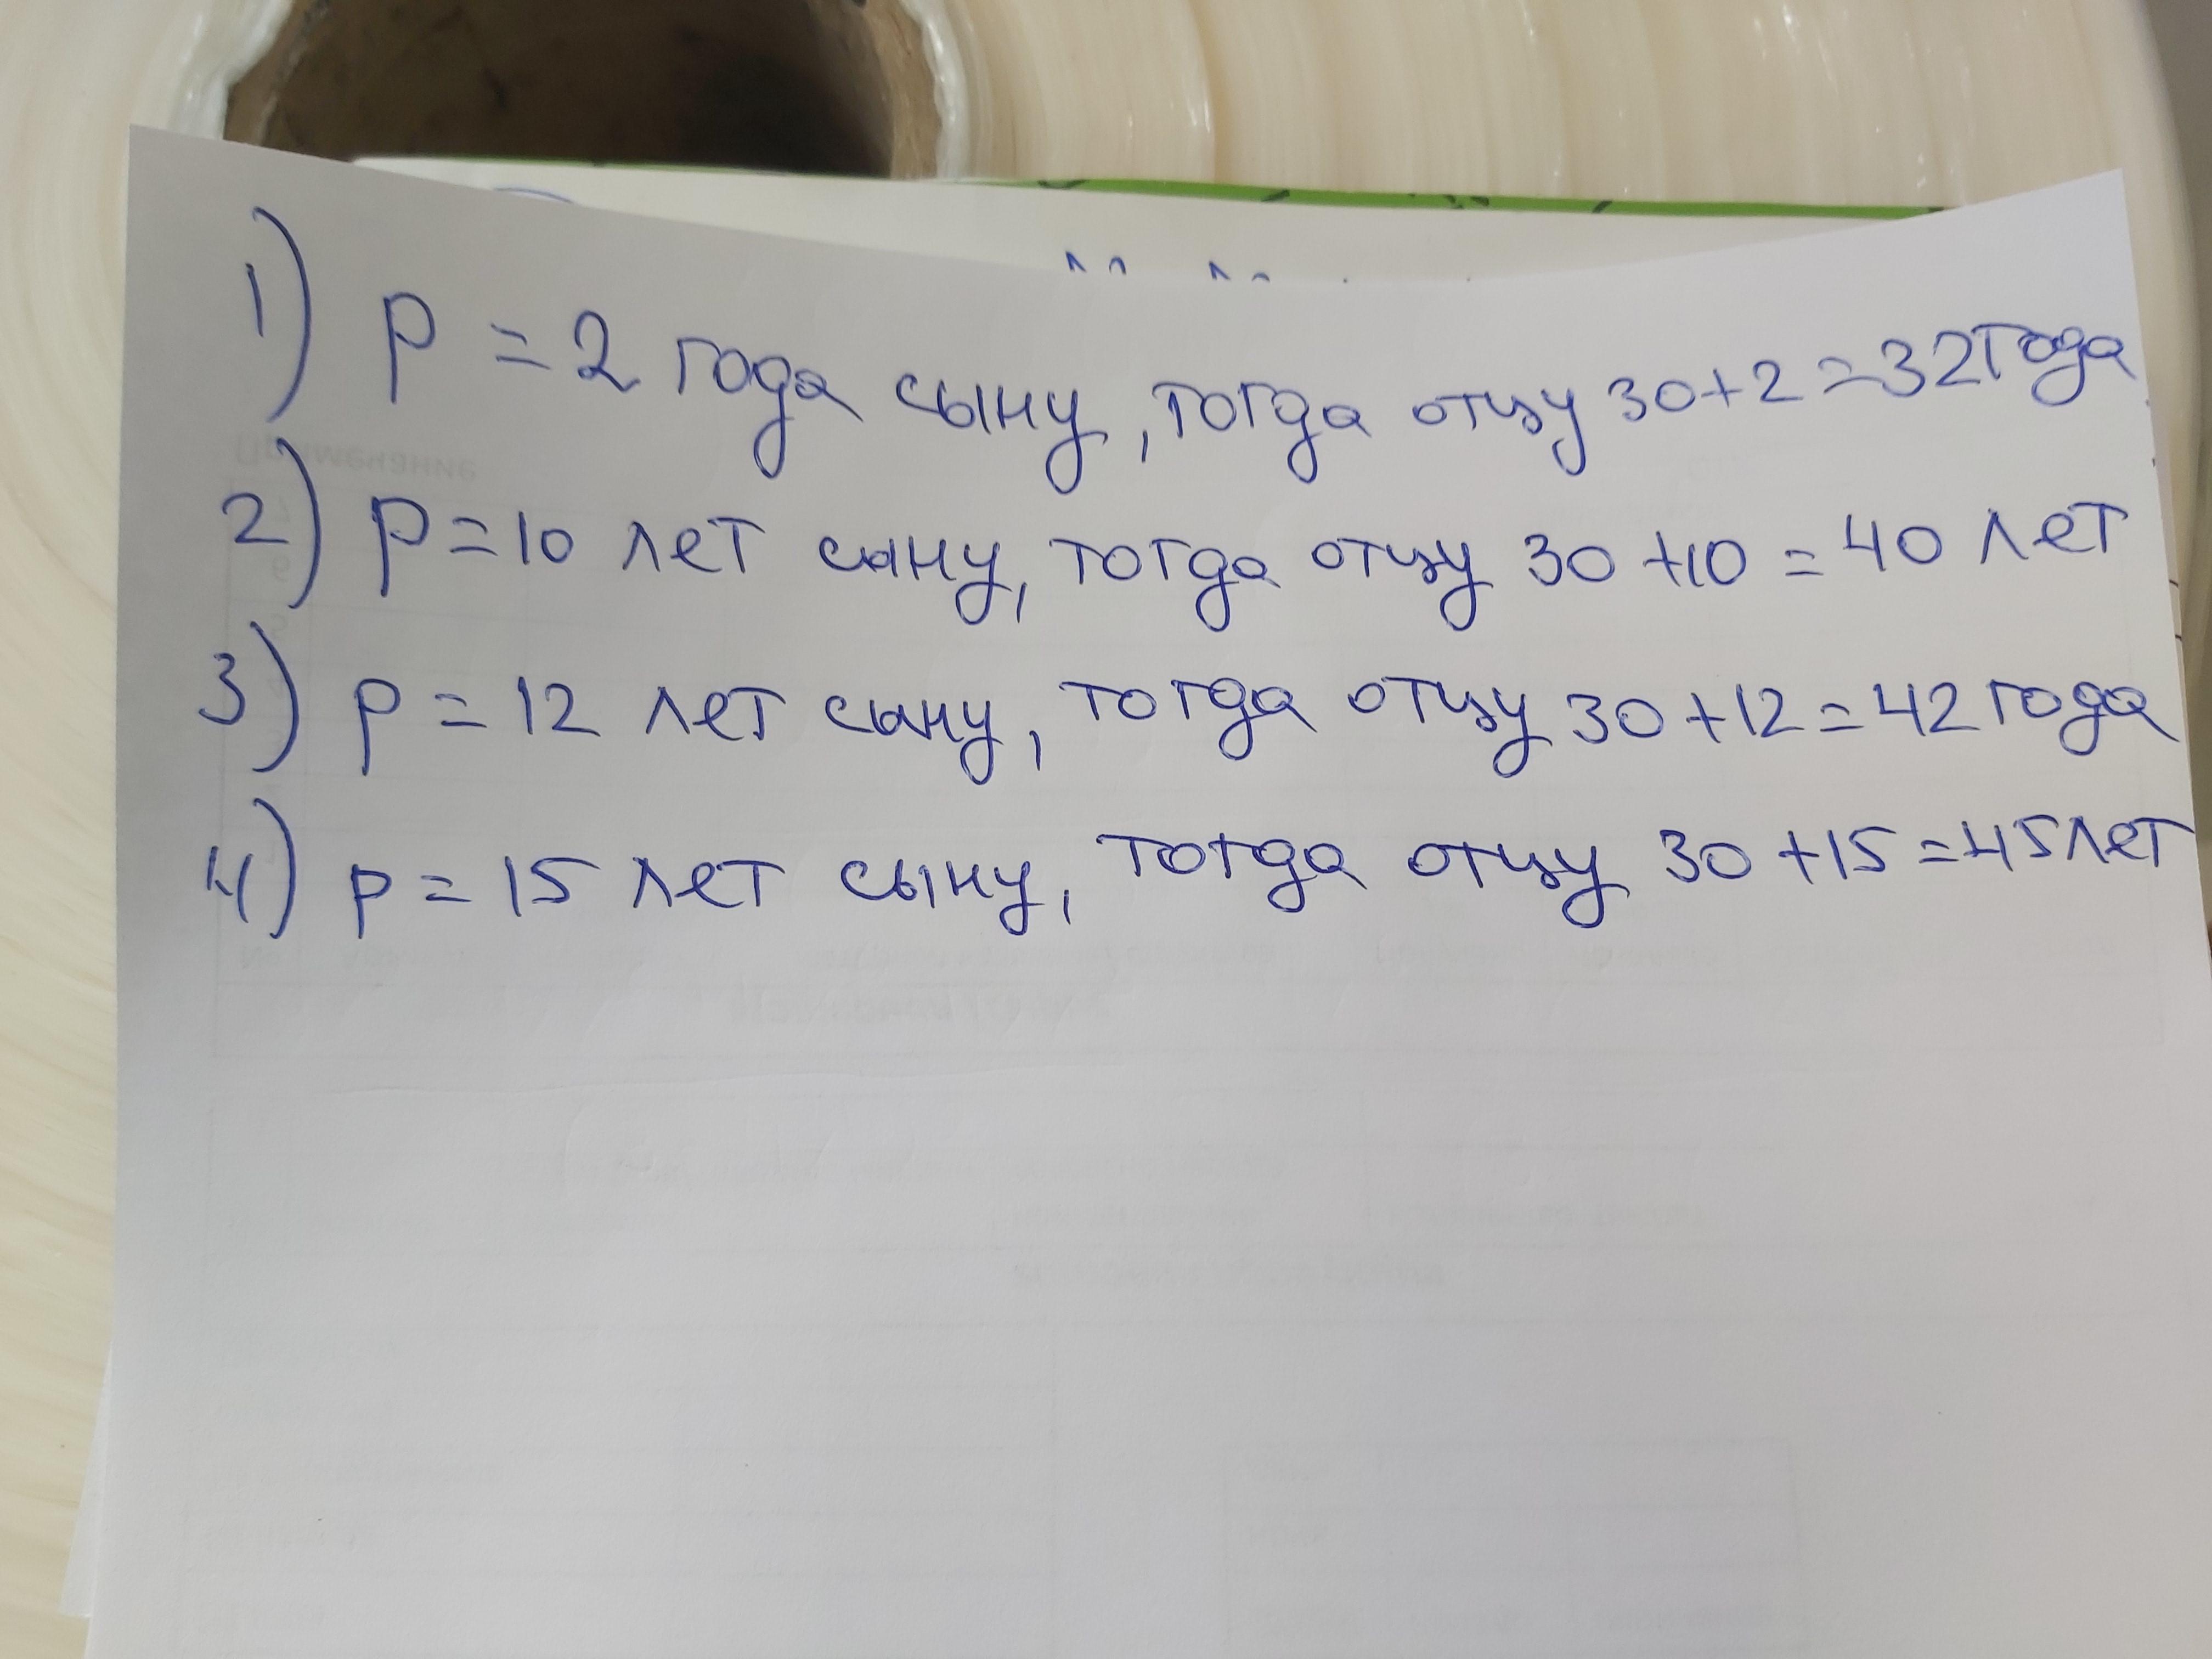 1) p = 2 года сыну, тогда отцу 30+2=32 года
2) p=10 лет сыну, тогда отцу 30 +10 = 40 лет
3) p = 12 лет сыну, тогда отцу 30+12=42 года
4) p = 15 лет сыну, тогда отцу 30 +15=45 лет